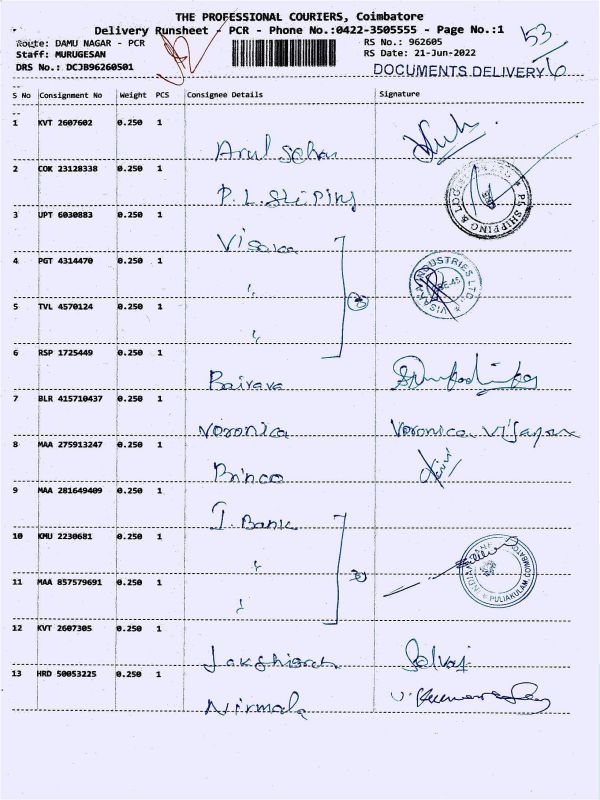 THE PROFESSIONAL COURIERS, Coimbatore
Delivery Runsheet - PCR - Phone No.:0422-3505555 - Page No.:1
Route: DAMU NAGAR - PCR
RS No.: 962605
53
Staff: MURUGESAN
RS Date: 21-Jun-2022
DRS No.: DCJB96260501
DOCUMENTS DELIVERY 6
S No Consignment No Weight PCS Consignee Details Signature
1 KVT 2607602 0.250 1
Arul
2 COK 23128338 0.250 1
P.L. Shiping
PL SHIPPING & LOG
3 UPT 6030883 0.250 1
Visaka
4 PGT 4314470 0.250 1
"
VISAKA INDUSTRIES LTD.
CBE-45
5 TVL 4570124 0.250 1
"
3
6 RSP 1725449 0.250 1
Bairava
7 BLR 415710437 0.250 1
Voronica Voronica Vijayan
8 MAA 275913247 0.250 1
Princo
9 MAA 281649409 0.250 1
I. Bank
10 KMU 2230681 0.250 1
"
3
INDIAN BANK PULIAKULAM, COIMBATORE
11 MAA 857579691 0.250 1
"
12 KVT 2607305 0.250 1
Selvaj
13 HRD 50053225 0.250 1
Nirmala